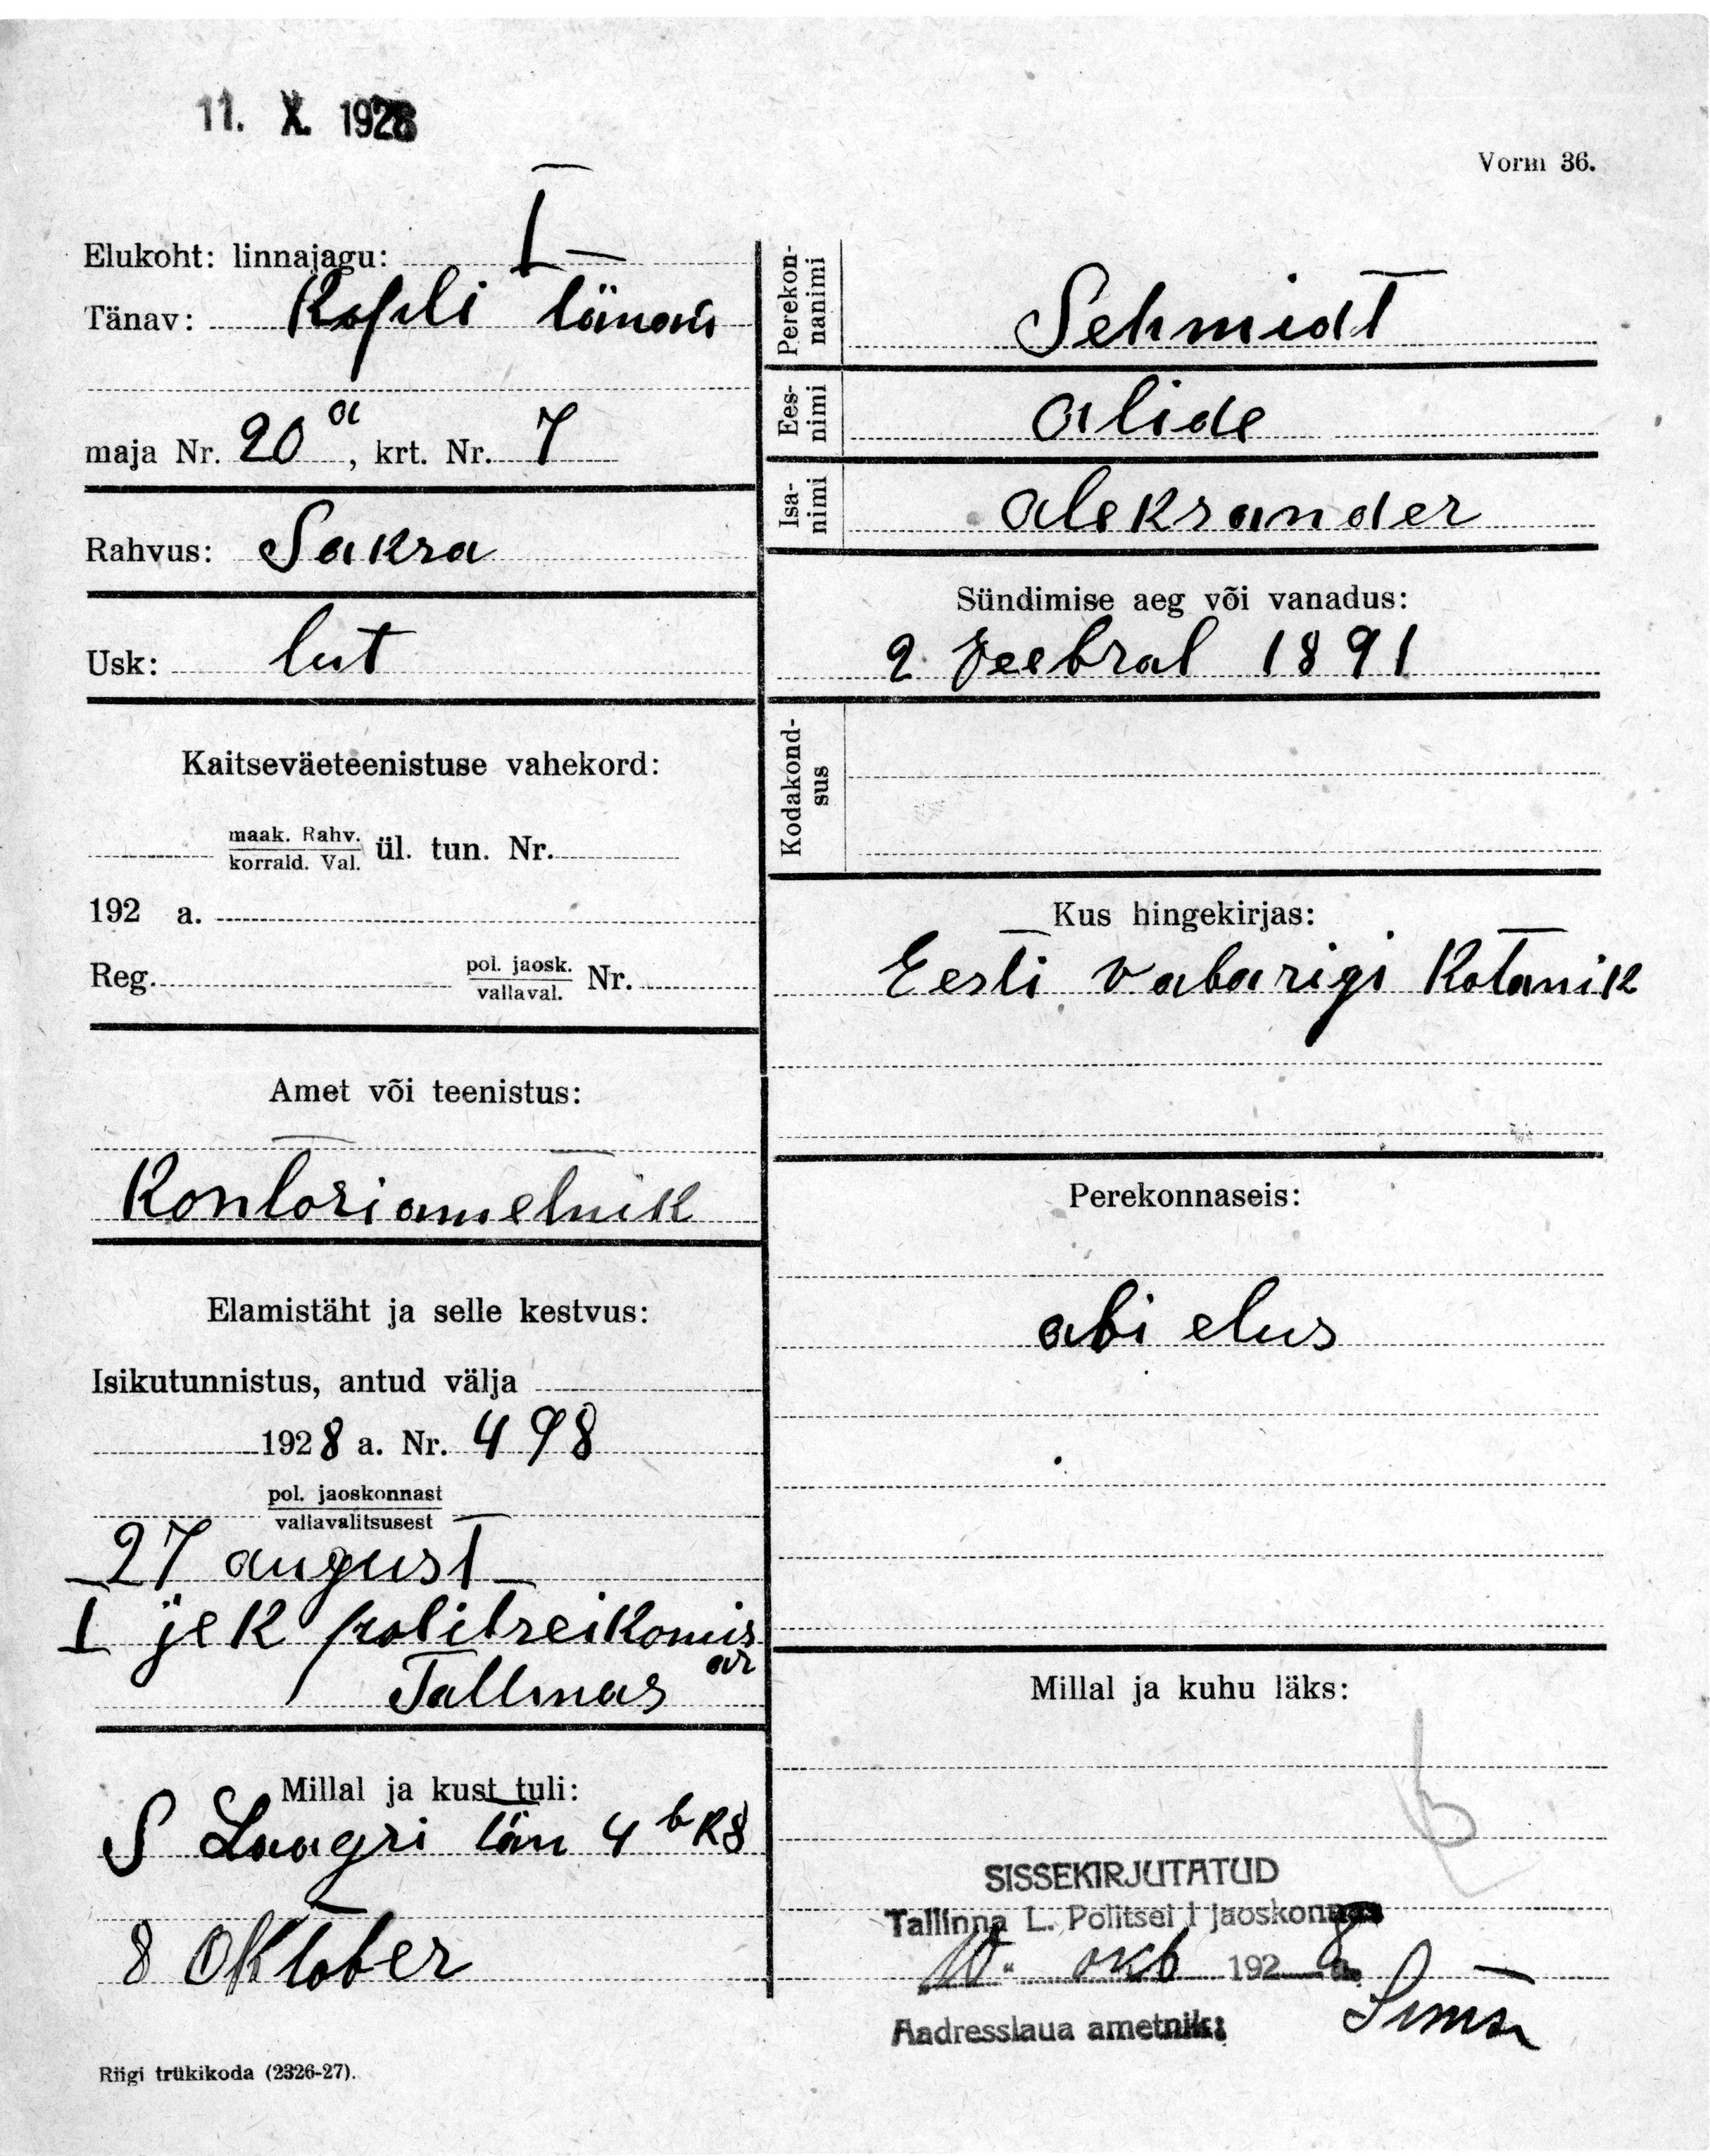 11. X. 1928
Vorm 36.
Elukoht: linnajagu: I
Tänav: Kopli tänav
maja Nr. 20 a, krt. Nr. 7
Rahvus: Sakra
Usk: lut
Kaitseväeteenistuse vahekord:
maak. Rahv.
korrald. Val. ül. tun. Nr.
192 a.
Reg. pol. jaosk. Nr.
vallaval.
Amet või teenistus:
Kontoriametnik
Elamistäht ja selle kestvus:
Isikutunnistus, antud välja
1928 a. Nr. 498
pol. jaoskonnast
vallavalitsusest
27 august
I jek politseikomis
ar
Tallinas
Millal ja kust tuli:
S Laagri tän 4 b k 8
8 Oktober
Riigi trükikoda (2326-27).
Perekon-
nanimi
Schmidt
Ees-
nimi
Alide
Isa-
nimi
Aleksander
Sündimise aeg või vanadus:
2. veebral 1891
Kodakond-
sus
Kus hingekirjas:
Eesti vabarigi Kotanik
Perekonnaseis:
abi elus
Millal ja kuhu läks:
SISSEKIRJUTATUD
Tallinna L. Politsei I jaoskonnas
10. okb 1928 a.
Aadresslaua ametnik: